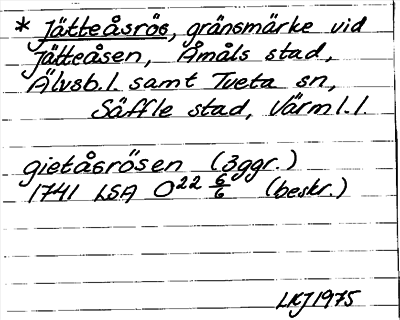 * Jätteåsrös, gränsmärke vid
Jätteåsen, Åmåls stad,
Älvsb.l. samt Tveta sn,
Säffle stad, Värml.l.
gietåsrösen (3ggr.)
1741 LSA O22 6/6 (beskr.)
LKJ 1975